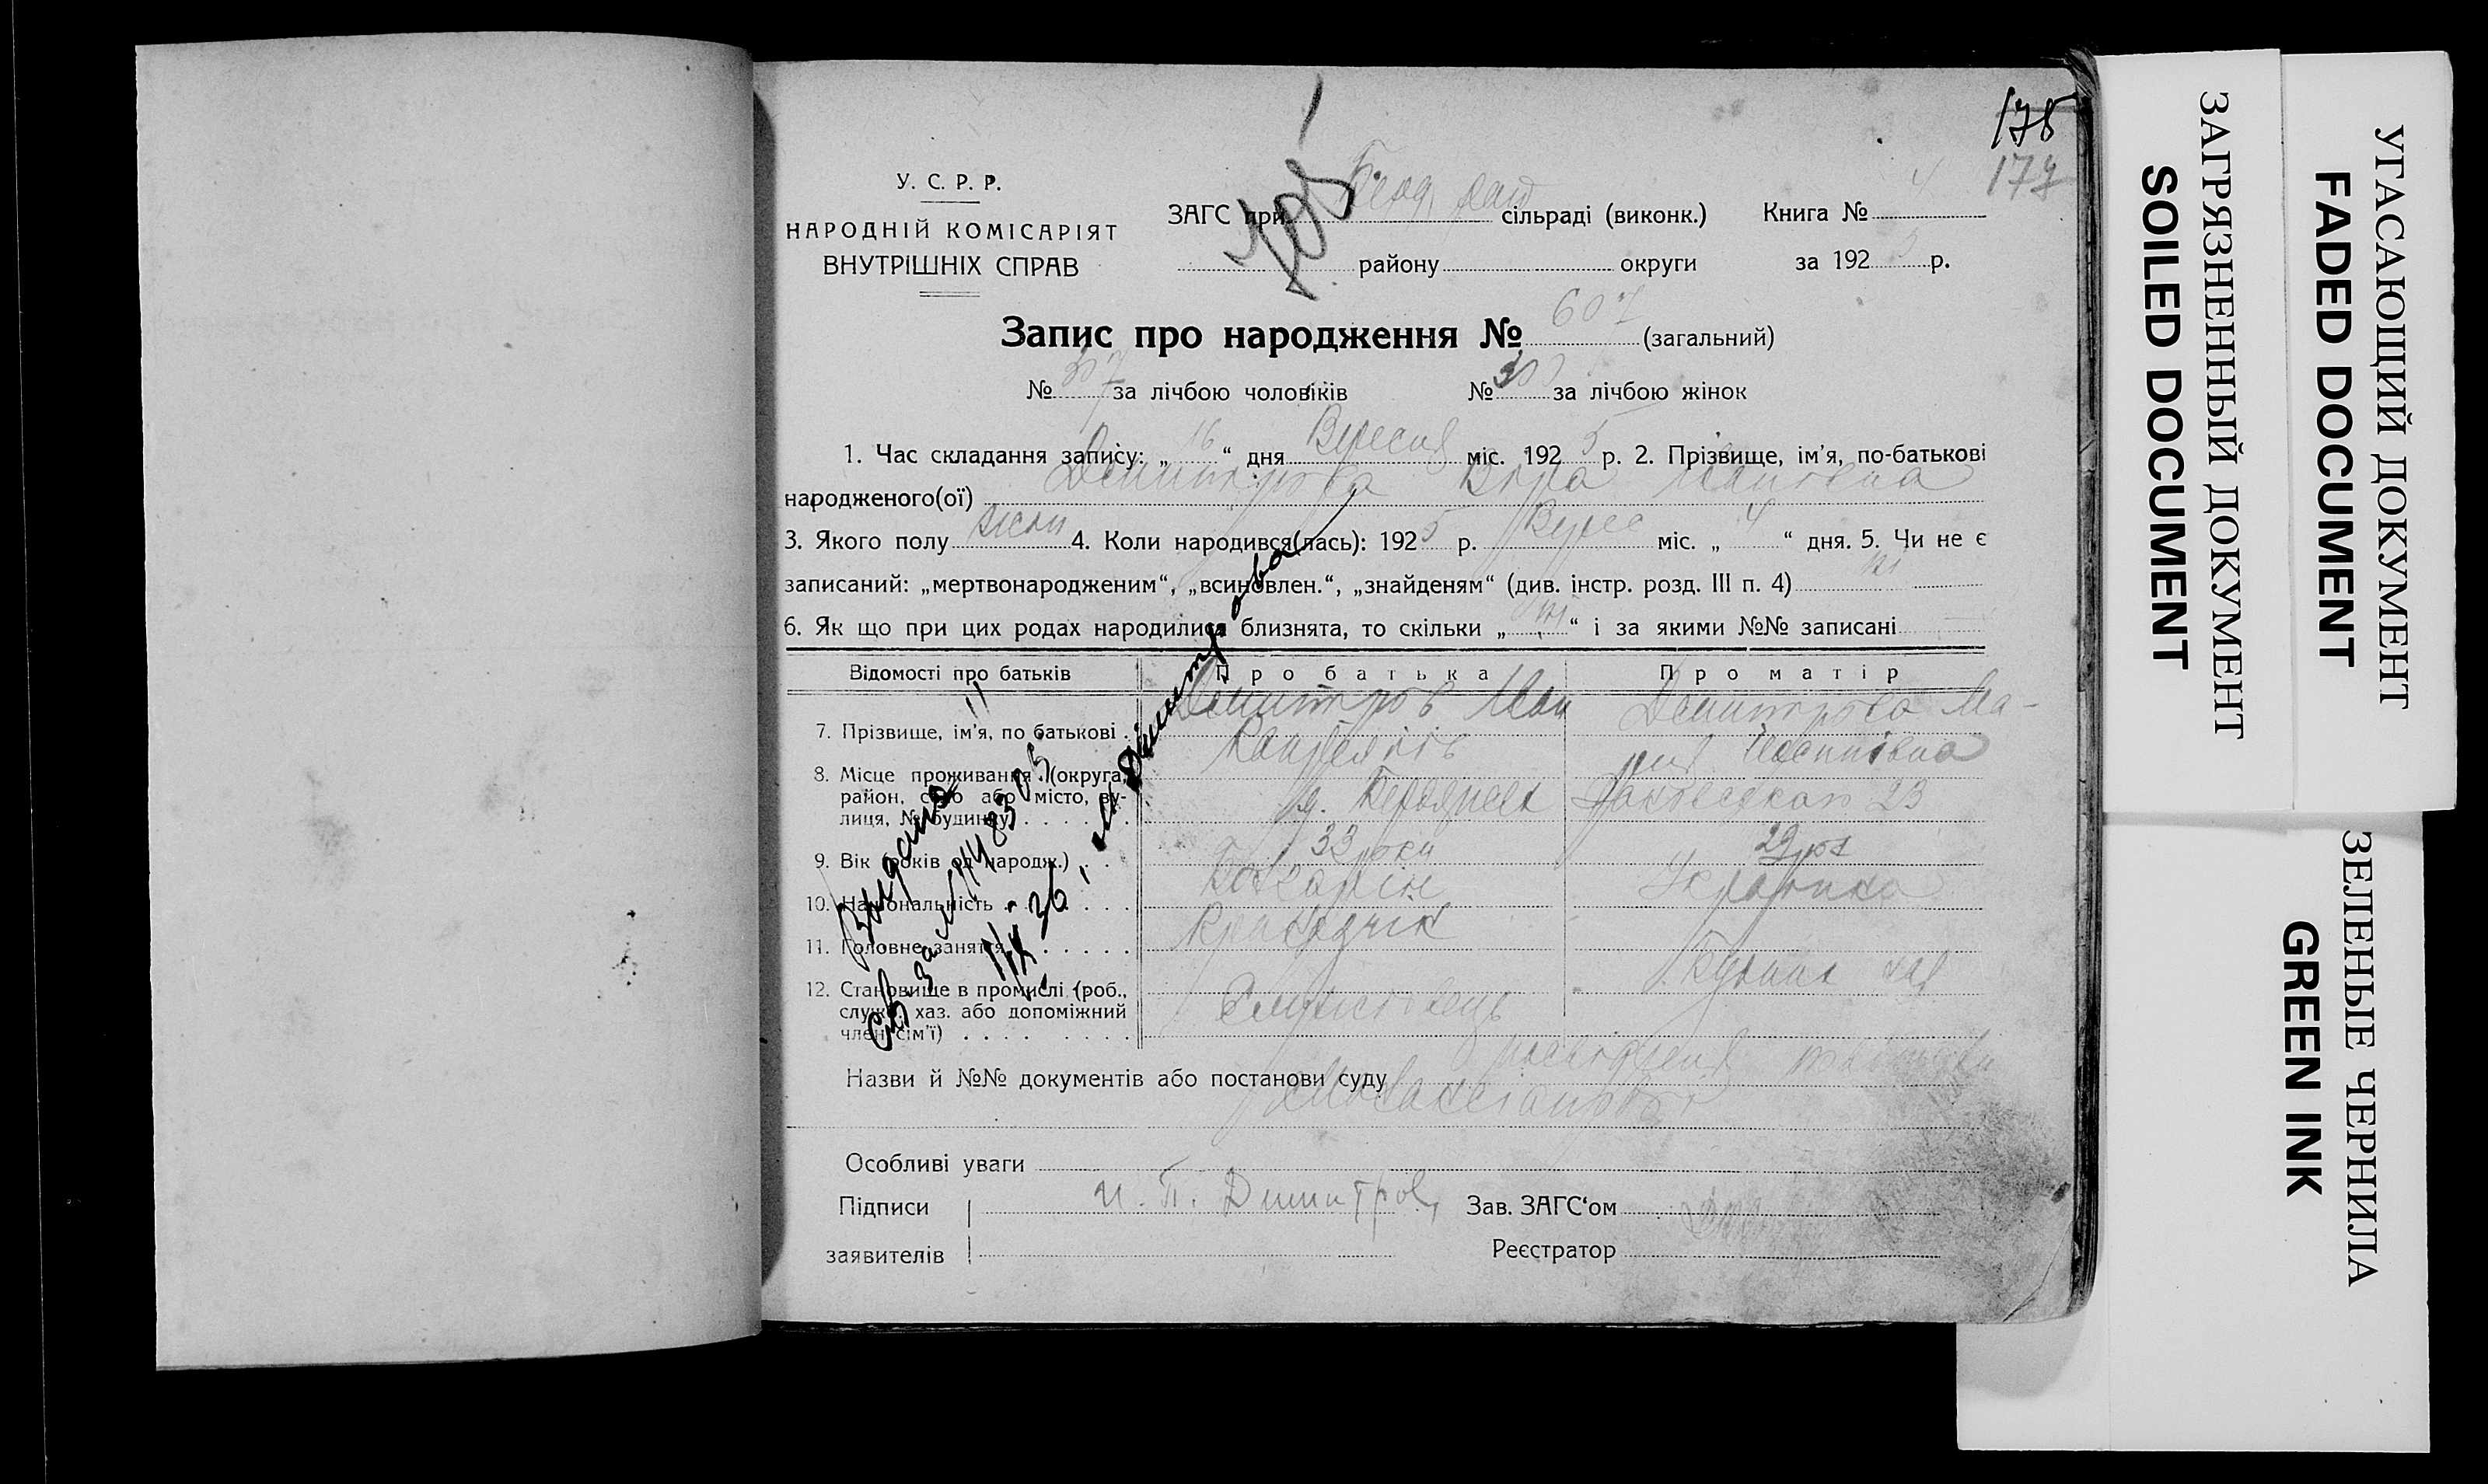 178
177
У. С. Р. Р.
НАРОДНІЙ КОМІСАРІЯТ
ВНУТРІШНІХ СПРАВ
ЗАГС при сільраді (виконк.) Книга № 4
району округи за 192 5 р.
Запис про народження № 607 (загальний)
№ 307 за лічбою чоловіків № 300 за лічбою жінок
1. Час складання запису: „ 16 “ дня Вересня міс. 192 5 р. 2. Прізвище, ім'я, по-батькові
народженого(ої) Демитрова Віра Іванівна
3. Якого полу жін 4. Коли народився(лась): 192 5 р. Верес міс. „ 4 “ дня. 5. Чи не є
записаний: „мертвонародженим“, „всиновлен.“, „знайденям“ (див. інстр. розд. III п. 4) ні
6. Як що при цих родах народилися близнята, то скільки „ ні “ і за якими №№ записані
Відомості про батьків Про батька Про матір
7. Прізвище, ім'я, по батькові Демитров Іван Демитрова Ма-
8. Місце проживання (округа, район, село або місто, вулиця, № будинку) 23
9. Вік (років од народж.) 33 роки 29 рок
10. Національність Болгарін Українка
11. Головне заняття
12. Становище в промислі (роб., служб. хаз. або допоміжний член сім'ї)
Назви й №№ документів або постанови суду
Особливі уваги
Підписи И. П. Димитров Зав. ЗАГС‘ом
заявителів Реєстратор
Выдана
Димитрова
ЗАГРЯЗНЕННЫЙ ДОКУМЕНТ
SOILED DOCUMENT
УГАСАЮЩИЙ ДОКУМЕНТ
FADED DOCUMENT
ЗЕЛЕНЫЕ ЧЕРНИЛА
GREEN INK